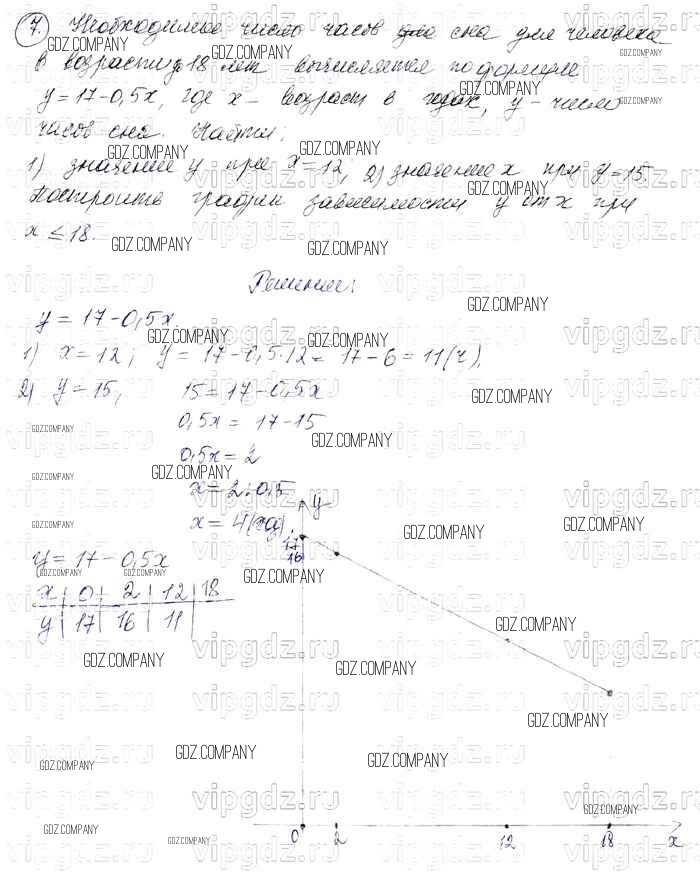 7. Необходимое число часов для сна для человека
в возрасти до 18 лет вычисляется по формуле
y = 17 - 0,5x, где x - возраст в годах, y - число
часов сна. Найти:
1) значение y при x = 12; 2) значение x при y = 15.
Построить график зависимости y от x при
x ≤ 18.
Решение:
y = 17 - 0,5x
1) x = 12; y = 17 - 0,5·12 = 17 - 6 = 11(ч),
2) y = 15, 15 = 17 - 0,5x
0,5x = 17 - 15
0,5x = 2
x = 2:0,5
x = 4
y = 17 - 0,5x
x | 0 | 2 | 12 | 18
y | 17 | 16 | 11 |
y
17
16
0 2 12 18 x
GDZ.COMPANY
vipgdz.ru